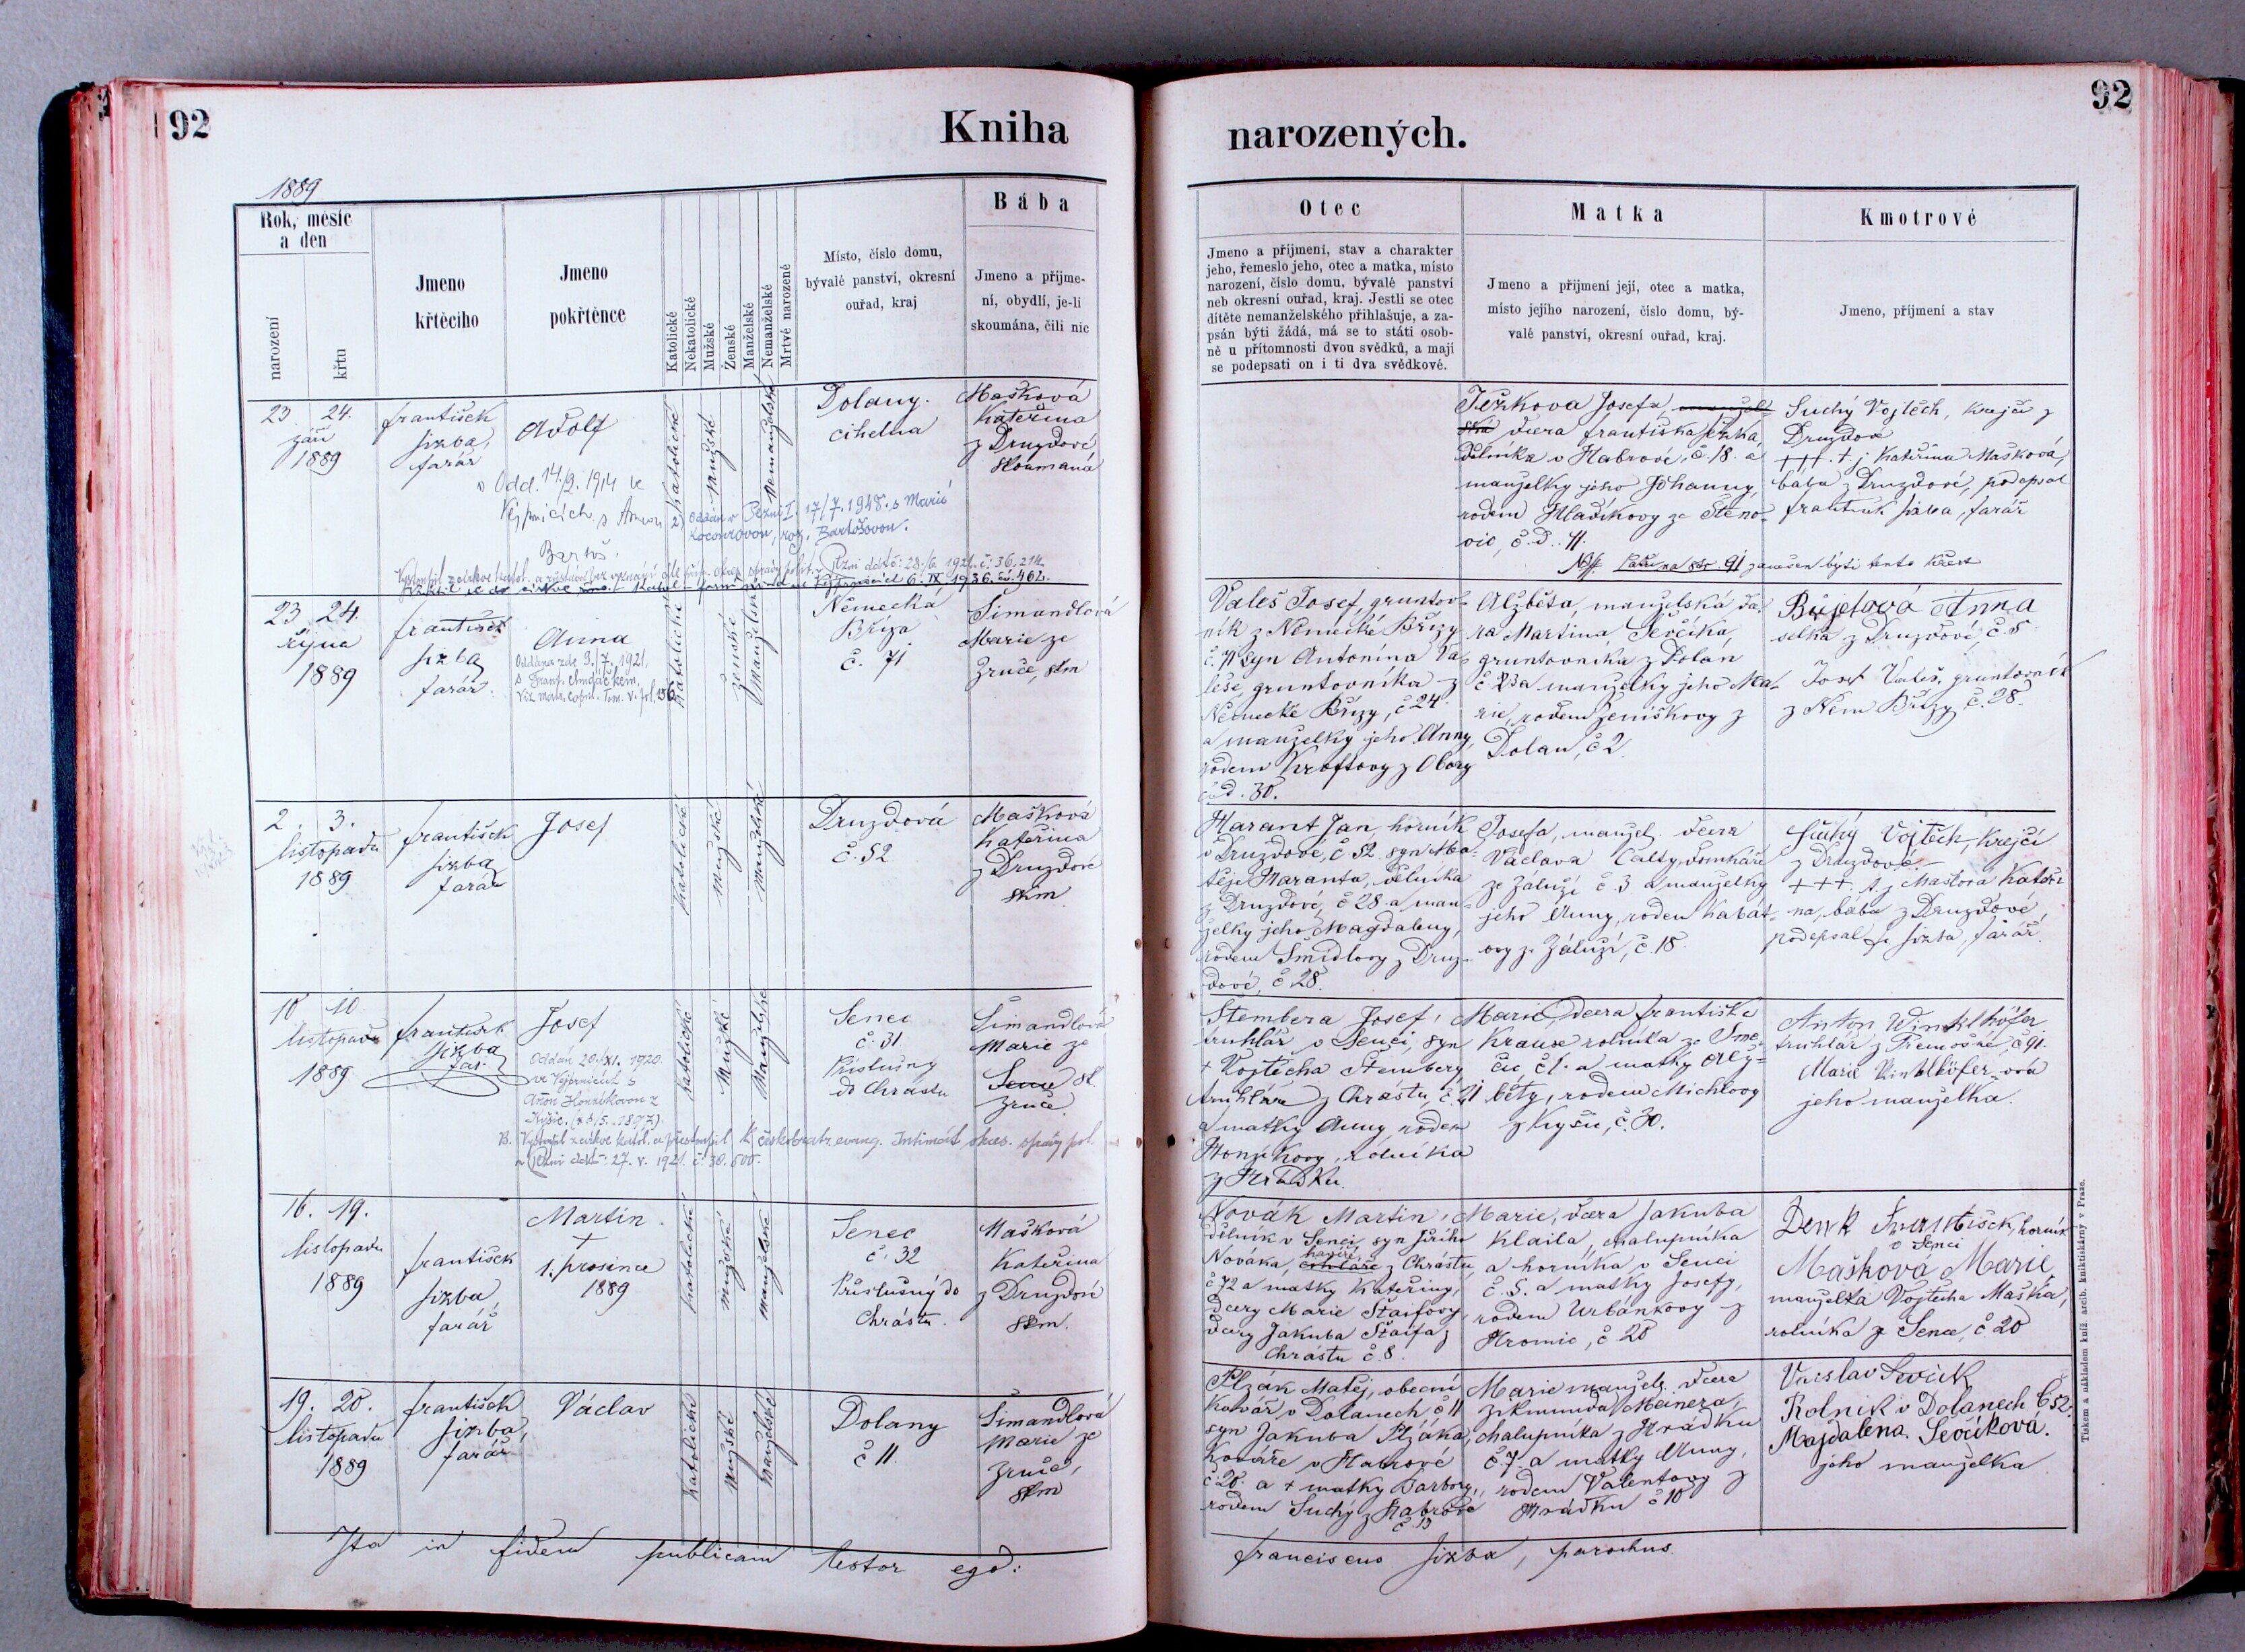 92
Kniha
narozených.
92
1889
Rok, měsíc
a den
narození
křtu
Jmeno
křtěcího
Jmeno
pokřtěnce
Katolické
Nekatolické
Mužské
Ženské
Manželské
Nemanželské
Mrtvé narozené
Místo, číslo domu,
bývalé panství, okresní
ouřad, kraj
Bába
Jmeno a příjme-
ní, obydlí, je-li
skoumána, čili nic
Otec
Jmeno a příjmení, stav a charakter
jeho, řemeslo jeho, otec a matka, místo
narození, číslo domu, bývalé panství
neb okresní ouřad, kraj. Jestli se otec
dítěte nemanželského přihlašuje, a za-
psán býti žádá, má se to státi osob-
ně u přítomnosti dvou svědků, a mají
se podepsati on i ti dva svědkové.
Matka
Jmeno a příjmení její, otec a matka,
místo jejího narození, číslo domu, bý-
valé panství, okresní ouřad, kraj.
Kmotrové
Jmeno, příjmení a stav
23 24.
září
1889
František
Sizba,
farář
Adolf
Odd. 14/2. 1914 ve
Vejprnicích s Annou
Bartoš.
2) oddán v Plzni I. 17/7. 1948. s Marií
Kocourovou, roz. Bartošovou.
Katolické
Mužské
Nemanželské
Dolany.
cihelna
Mašková
Kateřina
z Druzdové
skoumaná
Ježkova Josefa,
dcera Františka Ježka,
dělníka v Habrové, č. 18. a
manželky jeho Johanny,
rodem Hladíkovy ze Stěno-
vic, č. d. 11.
Suchý Vojtěch, krejčí z
Druzdové
+++. t. j. Kateřina Mašková,
bába z Druzdové, podepsal
František Sizba, farář
91 zanešen býti tento křest
23 24.
října
1889
František
Sizba
farář
Anna
Oddána zde 9./7. 1921.
s Frant.
Viz matr. copul. Tom. V. fol. 156
Katolické
ženské
Manželské
Německá
Bříza
č. 71
Simandlová
Marie ze
Zruče, skm
Valeš Josef, gruntov-
ník z Německé Břízy
č. 71 syn Antonína Va-
leše, gruntovníka z
Německé Břízy, č 24.
a manželky jeho Anny,
rodem Kroftovy z Obory
č. d. 30.
Alžběta, manželská dce-
ra Martina Ševčíka,
gruntovníka z Dolan
č. 23 a manželky jeho Ma-
rie, rodem Zeniškovy z
Dolan, č. 2.
Bujetová Anna
selka z Druzdové, č. 5
Josef Valeš, gruntovník
z Něm. Břízy, č. 28.
2. 3.
listopadu
1889
František
Sizba
farář
Josef
Katolické
Mužské
Manželské
Druzdová
č. 52
Mašková
Kateřina
z Druzdové
skm
Harant Jan, horník
v Druzdové, č. 52. syn Ma-
těje Haranta, dělníka
z Druzdové, č 28. a man-
želky jeho Magdaleny,
rodem Šmídlovy z Druz-
dové, č 28.
Josefa, manžel. dcera
Václava Calty, domkáře
ze Záluží č. 3 a manželky
jeho Anny, rodem Kabát-
ovy ze Záluží, č. 18.
Suchý Vojtěch, krejčí
z Druzdové
+++. t. j. Mašková Kateři-
na, bába z Druzdové,
podepsal Fr. Sizba, farář.
10 10.
listopadu
1889
František
Sizba
far.
Josef
Oddán 20./XI. 1920
ve Vejprnicích s
Annou Honzíkovou z
Kyšic. (* 5. 1897).
B. Vystoupil z církve katol. a přestoupil k českobratr. evang. Intimát okres. správy pol.
v Plzni ddtō: 27. V. 1921. č. 30.600.
Katolické
Mužské
Manželské
Senec
č. 31
Příslušný
do Chrástu
Simandlová
Marie ze
Zruče.
Štembera Josef,
truhlář v Senci, syn
+ Vojtěcha Štembery
truhláře z Chrástu, č. 21
a matky Anny rodem
Honzíkovy, rolníka
z Hrádku.
Marie, dcera Františka
Krause rolníka ze Sme-
čic, č. 1. a matky Alž-
běty, rodem Michlovy
z Kyšic, č. 30.
Anton Winklhöfer
truhlář z Třemošné, č 91.
Marie Winklhöfer-ová
jeho manželka.
16. 19.
listopadu
1889
František
Sizba,
farář
Martin
+
1. prosince
1889
Katolické
Mužské
Manželské
Senec
č. 32
Příslušný do
Chrástu.
Mašková
Kateřina
z Druzdové
skm.
Novák Martin,
dělník v Senci, syn Jiřího
havíře
Nováka, z Chrástu,
č 72 a matky Kateřiny,
dcery Marie Štaifovy,
dcery Jakuba Štaifa z
Chrástu č. 8.
Marie, dcera Jakuba
Klaila, chalupníka
a horníka v Senci
č. 5. a matky Josefy,
rodem Urbánkovy z
Hromic, č. 28
Denk František, horník
v Senci
Mašková Marie,
manželka Vojtěcha Maška,
rolníka ze Sence, č. 20
19. 20.
listopadu
1889
František
Sizba,
farář
Václav
Katolické
Mužské
Manželské
Dolany
č 11.
Simandlová
Marie ze
Zruče,
skm
Plzák Matěj, obecní
kovář v Dolanech č 11
syn Jakuba Plzáka,
kováře v Habrové
č 28. a + matky Barbory,
rodem Suchý z Habrové
č. 13
Marie manžel. dcera
Zikmunda Meinera,
chalupníka z Hrádku
č. 7. a matky Anny,
rodem Valentovy z
Hrádku č 10
Václav Sevčik
Rolnik v Dolanech č 52.
Majdalena Sevčíková.
jeho manželka
Ita in fidem publicam testor ego:
Franciscus Sizba, parochus.
Tiskem a nákladem kníž. arcib. knihtiskárny v Praze.